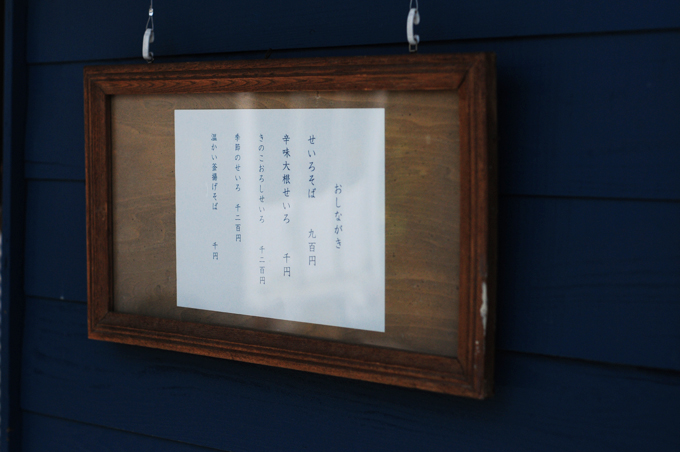 おしながき
せいろそば 九百円
辛味大根せいろ 千円
きのこおろしせいろ 千二百円
季節のせいろ 千二百円
温かい釜揚げそば 千円